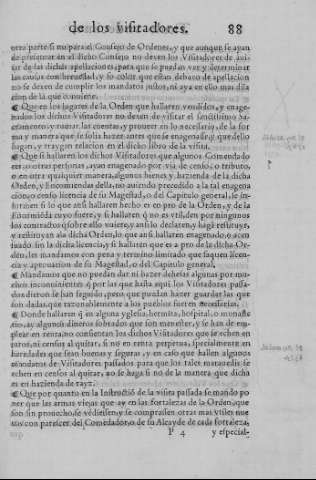 de los visitadores. 88
otra parte si no para el Consejo de Ordenes, y que aunque se ayan
de presentar en el dicho Consejo no dexen los Visitadores de
de las dichas apelaciones, para que se puedan ver y determinar
las causas con breuedad, y so color que estan debaxo de apelacion
no se dexen de cumplir los mandatos justos, ni aya en ello mas dila
cion de la que conuiene.
Que en los lugares de la Orden que hallaren vendidos, y enage-
nados los dichos Visitadores no dexen de visitar el santissimo Sa-
cramento, y tomar las cuentas, y proueer en lo necessario, de la for
ma y manera que se solia hazer antes que se enagenasse, y que dello
hagan, y traygan relacion en el dicho libro de la visita.
Que si hallaren los dichos Visitadores, que algunos Comendado
res o otras personas, ayan enagenado por via de censo, o tributo,
o en otra qualquier manera, algunos bienes, y hazienda de la dicha
Orden, y Encomiendas della, no auiendo precedido a la tal enagena
cion, o censo licencia de su Magestad, o del Capitulo general, se in-
formen si lo que assi hallaren hecho es en pro de la Orden, y de la
Encomieda cuyo fuere, y si hallarē q̄ no es vtil, den por ningunos
los contractos q̄ sobre ello vuiere, y anssi lo declaren, y hagā restituyr,
y restituyan a la dicha Orden, lo que an si hallaren enagenado, o acen
suado sin la dicha licencia, y si hallaren que es a pro de la dicha Or-
den, les mandamos con pena y termino limitado que saquen licen-
cia y aprouacion de su Magestad, o del Capitulo general.
Mandamos que no puedan dar ni hazer dehesas algunas por mu-
chos inconuinientes q̄ por las que hasta aqui los Visitadores passa-
dos dieron se han seguido, pero que puedan hazer guardar las que
son dadas, que razonablemente a los pueblos fueren necessarias.
Donde hallaren q̄ en alguna yglesia, hermita, hospital, o monaste
rio, ay algunos dineros sobrados que son menester, y se han de em-
plear en renta, no consientan los dichos Visitadores que se echen en
paros, ni censos al quitar, si no en renta perpetua, specialmente en
haredades que sean buenas y seguras, y en caso que hallen algunos
mandatos de Visitadores passados para que los tales marauedis se
echen en censos al quitar, no se haga si no de la manera que dicha
es en hazienda de rayz.
Que por quanto en la Instructiō de la visita passada se mando po
ner que las armas viejas que ay en las fortalezas de la Orden, que
son sin prouecho, se vēdiessen, y se comprassen otras mas vtiles nue
uas con parescer del Comēdador, o de su Alcayde de cada fortaleza,
P 4 y especial-